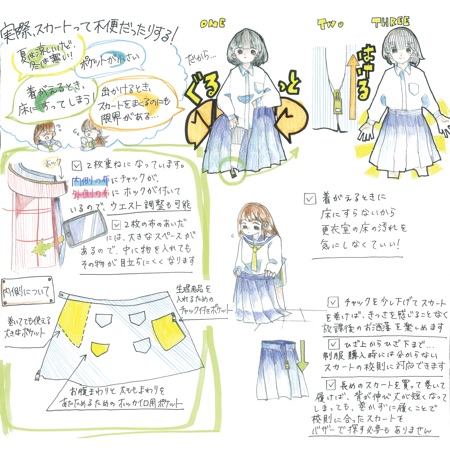 実際、スカートって不便だったりする!
夏は涼しいけど、
冬は寒い!
ポケットが小さい
着がえるとき、
床にすってしまう!
出かけるとき、
スカートをまくるのにも
限界がある…
だから…
ONE
ぐるっと
TWO
THREE
ホック
2枚重ねになっています。
内側の布にチャックが、
外側の布にホックが付いて
いるので、ウエスト調整も可能
2枚の布のあいだ
には、大きなスペースが
あるので、中に物を入れても
その物が目立ちにくくなります
内側について
巻いても使える
大きなポケット
生理用品を
入れるための
チャック付きポケット
お腹まわりと太ももまわりを
あたためるためのホッカイロ用ポケット
着がえるときに
床にすらないから
更衣室の床の汚れを
気にしなくていい!
チャックを少し下げてスカート
を巻けば、きつさを感じることなく
放課後のお洒落を楽しめます
ひざ上からひざ下まで…
制服購入時には分からない
スカートの校則に対応できます
長めのスカートを買って巻いて
履けば、背が伸びて丈が短くなって
しまっても、巻かずに履くことで
校則に合ったスカートを
バザーで探す必要もありません